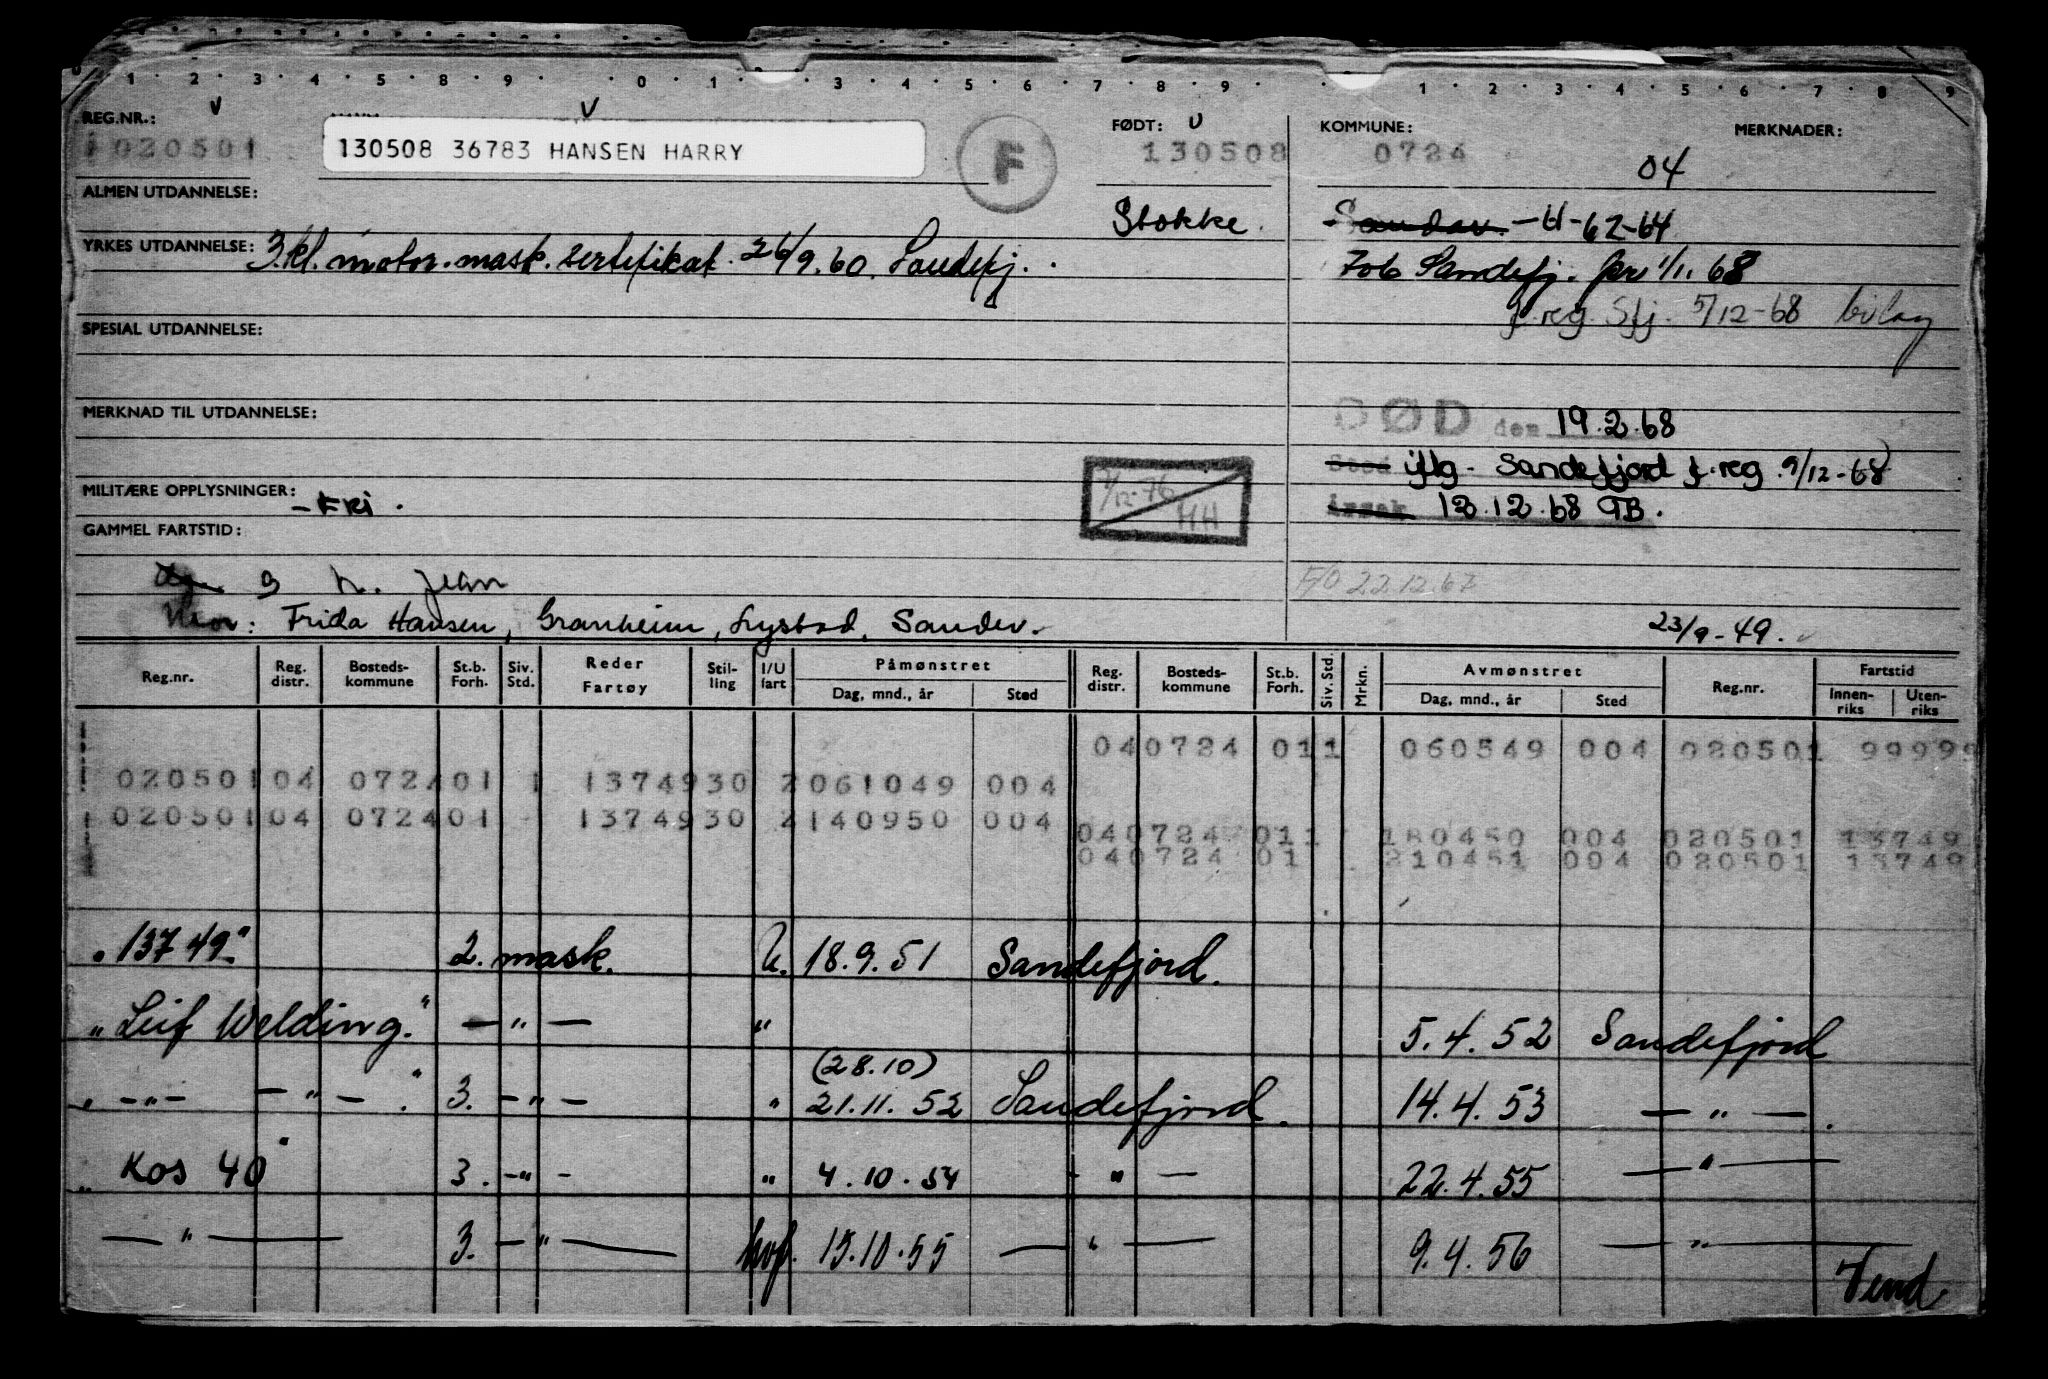 1 2 3 4 5 8 9 0 1 2 3 4 5 6 7 8 9 1 2 3 4 5 6 7 8 9
REG.NR.: V V FØDT: U KOMMUNE: MERKNADER:
1020501 130508 36783 HANSEN HARRY F 130508 0724 04
ALMEN UTDANNELSE: Stokke. Sandar. -H-62-64
YRKES UTDANNELSE: 3.kl. motor.mask. sertifikat. 26/9.60. Sandefj. 706 Sandefj. pr 1/1.68
f.reg. Sfj. 5/12-68 bilag
SPESIAL UTDANNELSE:
MERKNAD TIL UTDANNELSE: DØD den 19.2.68
Sted iflg. Sandefjord f.reg. 9/12-68
MILITÆRE OPPLYSNINGER: -Fri. 7/12-76 HH Årsak 13.12.68 TB.
GAMMEL FARTSTID:
22.12.67
Mor: Frida Hansen, Granheim, Lystad, Sandev. 23/9-49.
Reg.nr. Reg. distr. Bosteds-kommune St.b. Forh. Siv. Std. Reder Fartøy Stil-ling I/U fart Påmønstret Dag, mnd., år Sted Reg. distr. Bosteds-kommune St.b. Forh. Siv. Std. Mrkn. Avmønstret Dag, mnd., år Sted Reg.nr. Fartstid Innen-riks Uten-riks
040724 011 060549 004 020501 99999
020501 04 072401 1 1374930 2061049 004
020501 04 072401 - 1374930 2140950 004
040724 011 180450 004 020501 13749
040724 01 210451 004 020501 13749
"13749" 2. mask. U. 18.9.51 Sandefjord.
"Leif Welding." — " — " 5.4.52 Sandefjord
(28.10)
" — " — — " — . " 3. — " — " 21.11.52 Sandefjord. 14.4.53 — " — .
" Kos 40 " 3. - " - " 4.10.54 - " — 22.4.55 — " —
— " — 3. — " — hvf. 15.10.55 — " — 9.4.56 — " —
Vend